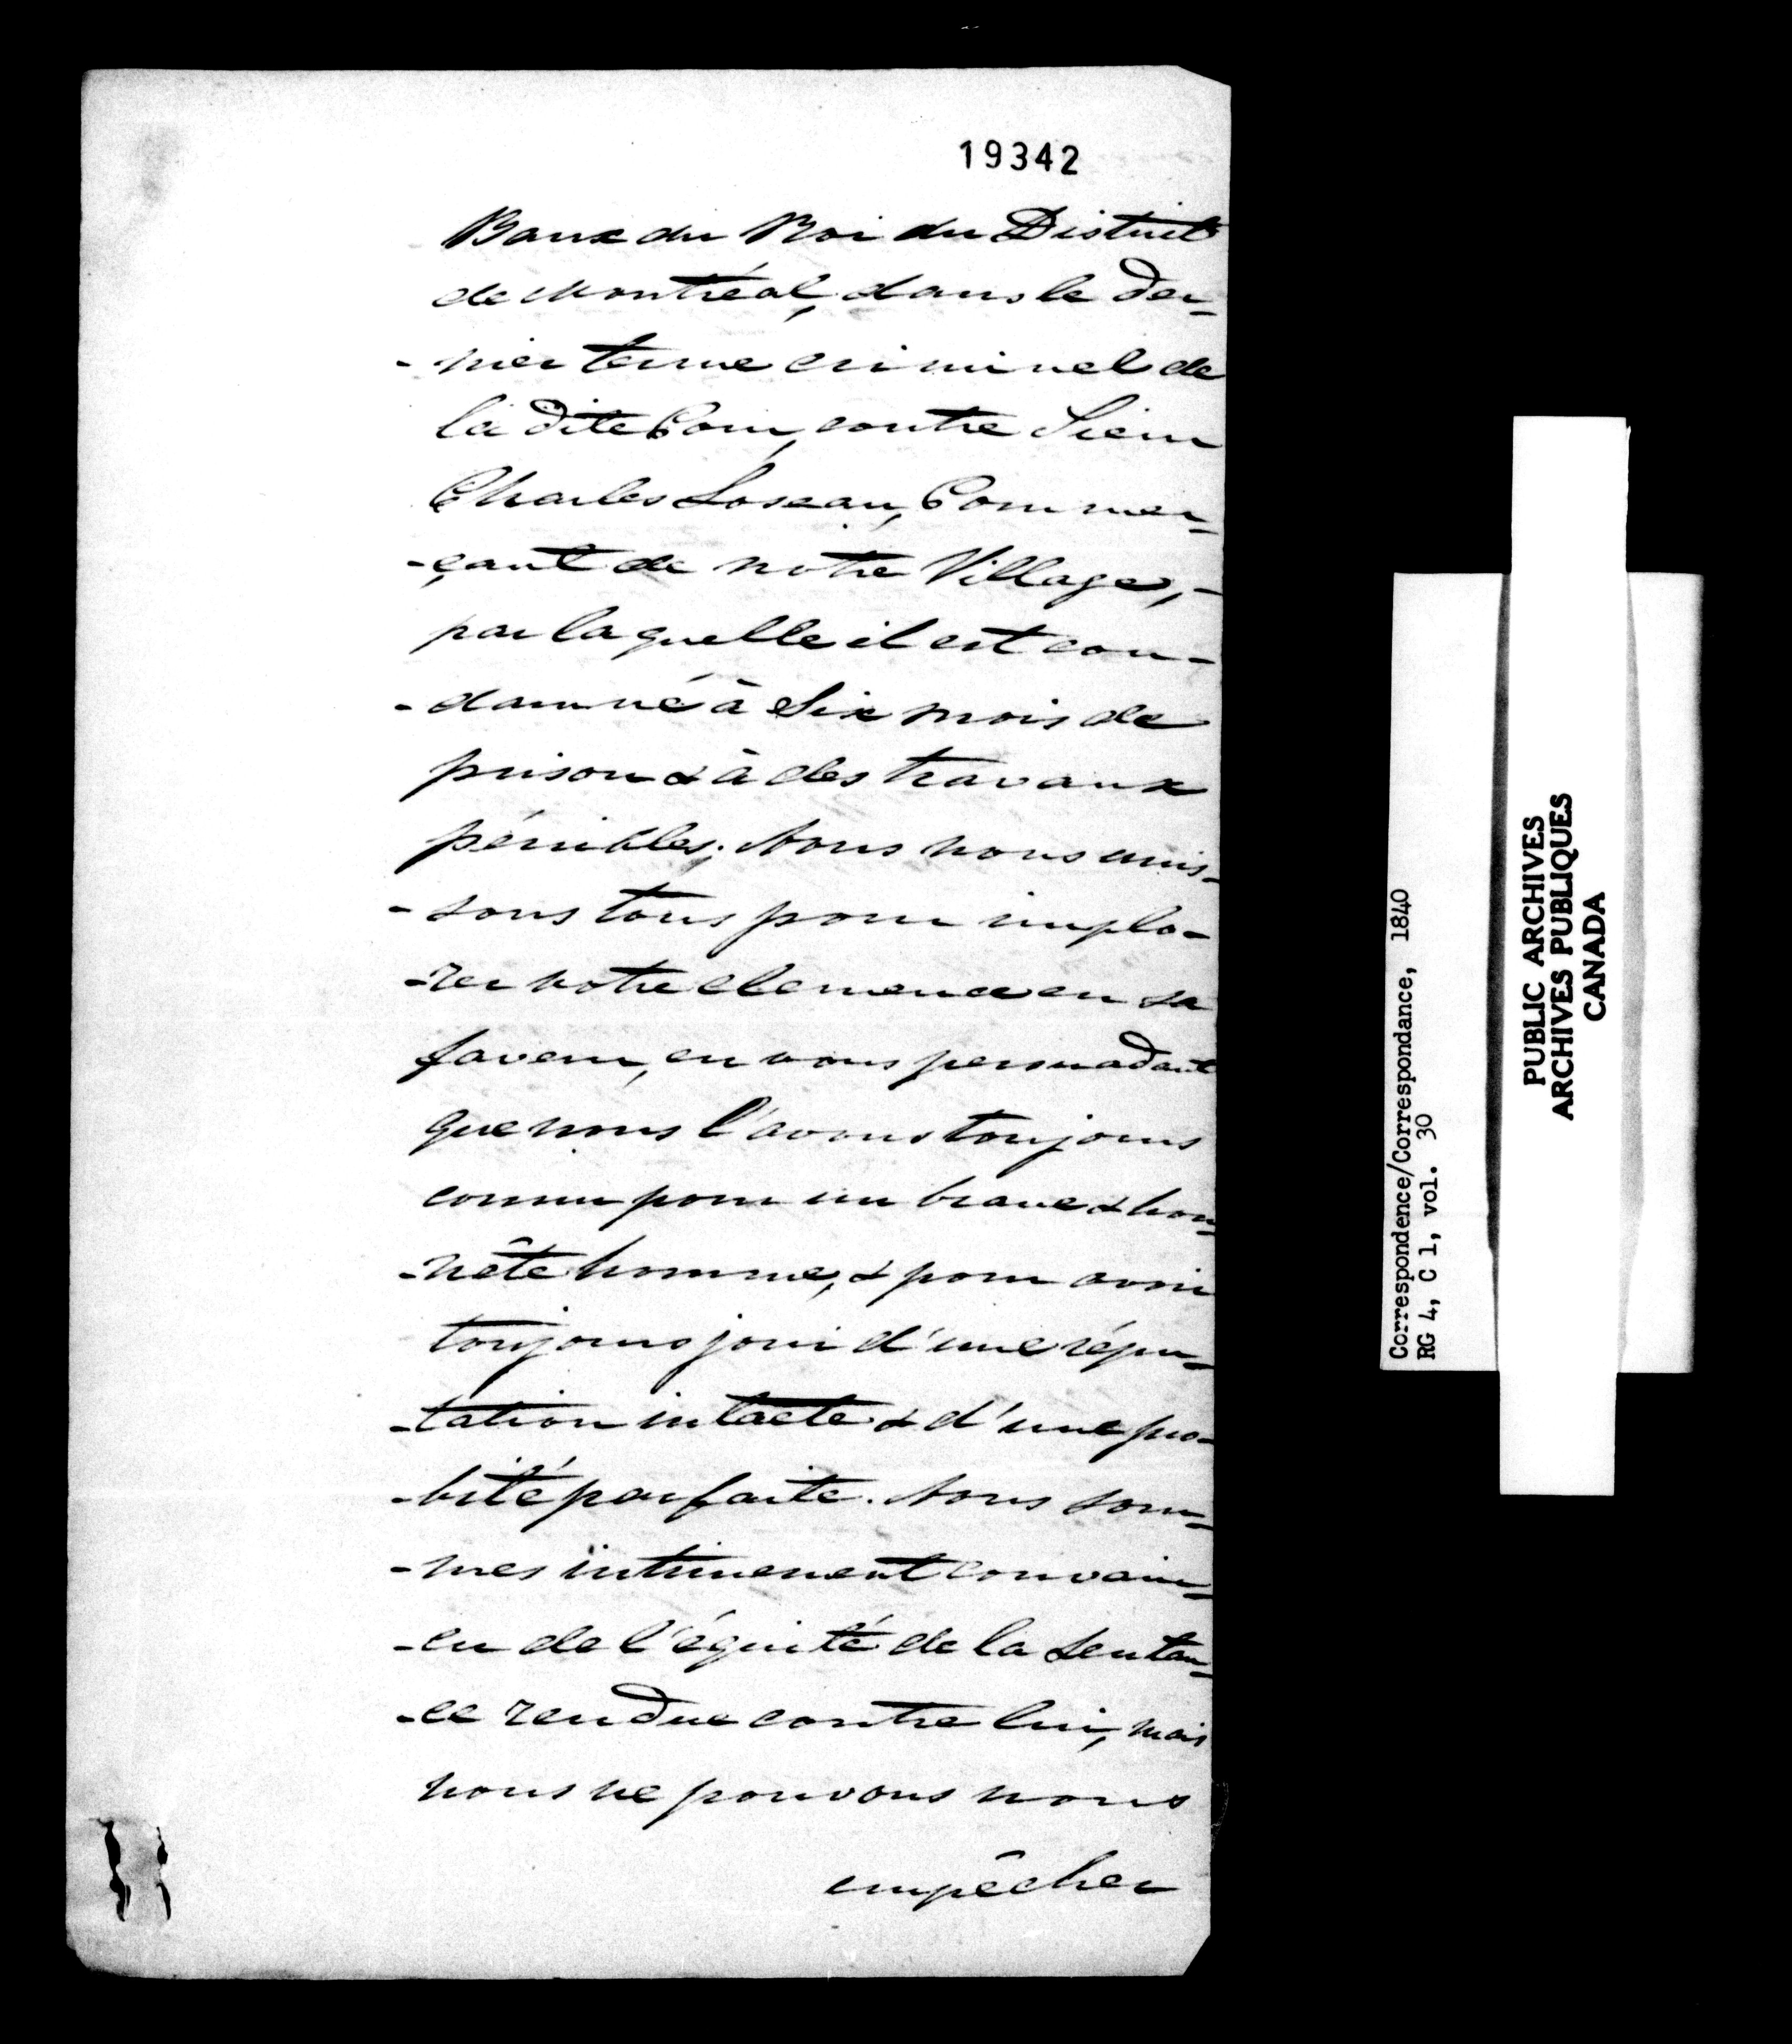 19342
Banc du Roi du District
de Montréal, dans le der-
-nier terme criminel de
la dite Cour, contre Sieur
Charles Loseau, Commer-
-çant de notre Village,-
par laquelle il est con-
-damné à Six mois de
prison & à des travaux
pénibles; Nous nous unis-
-sons tous pour implo-
-rer votre clemence en sa
faveur, en vous persuadant
que nous l'avons toujours
connu pour un brave & hon-
-nête homme, & pour avoir
toujours joui d'une répu-
-tation intacte & d'une pro-
-bité parfaite. Nous som-
-mes intimement convain-
-cu de l'équité de la Sentan-
-ce rendue contre lui, mais
nous ne pouvons nous
empêcher
Correspondence/Correspondance, 1840
RG 4, C 1, vol. 30
PUBLIC ARCHIVES
ARCHIVES PUBLIQUES
CANADA